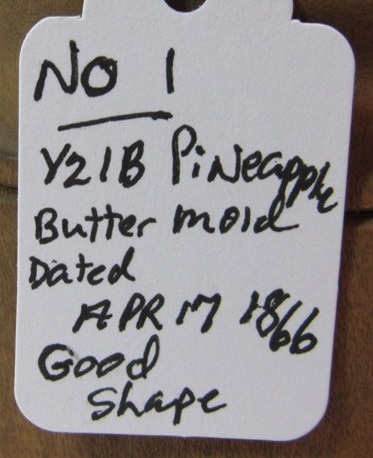 NO 1
Y21B Pineapple
Butter mold
Dated
APR 17 1866
Good
Shape